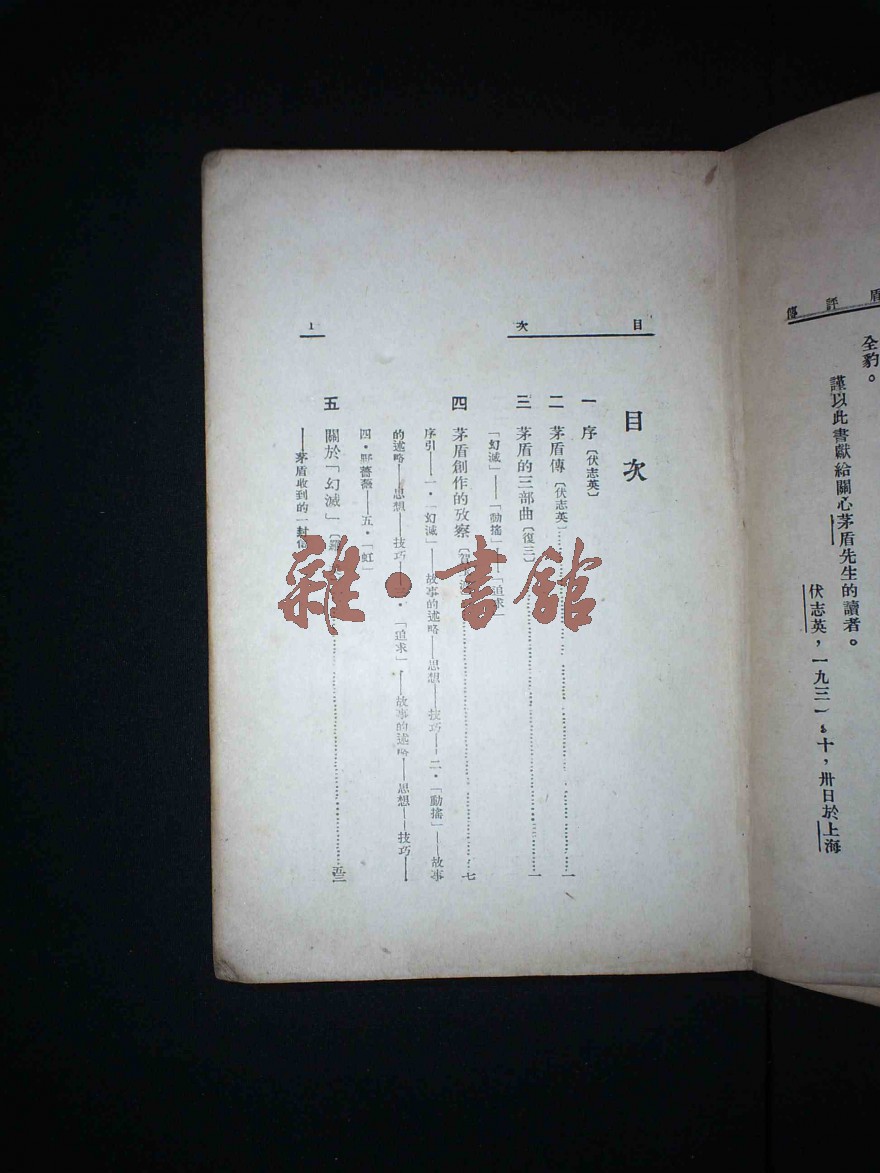 盾評傳
全豹。
謹以此書獻給關心茅盾先生的讀者。
伏志英，一九三一，十，卅日於上海
目次
1
目次
一 序〔伏志英〕
二 茅盾傳〔伏志英〕……一
三 茅盾的三部曲〔復三〕……一
「幻滅」——「動搖」——「追求」
四 茅盾創作的攷察……七
序引——一·「幻滅」——故事的述略——思想——技巧——二·「動搖」——故事
的述略——思想——技巧——「追求」——故事的述略——思想——技巧——
四·野薔薇——五·「虹」
五 關於「幻滅」……五三
——茅盾收到的一封
雜·書館